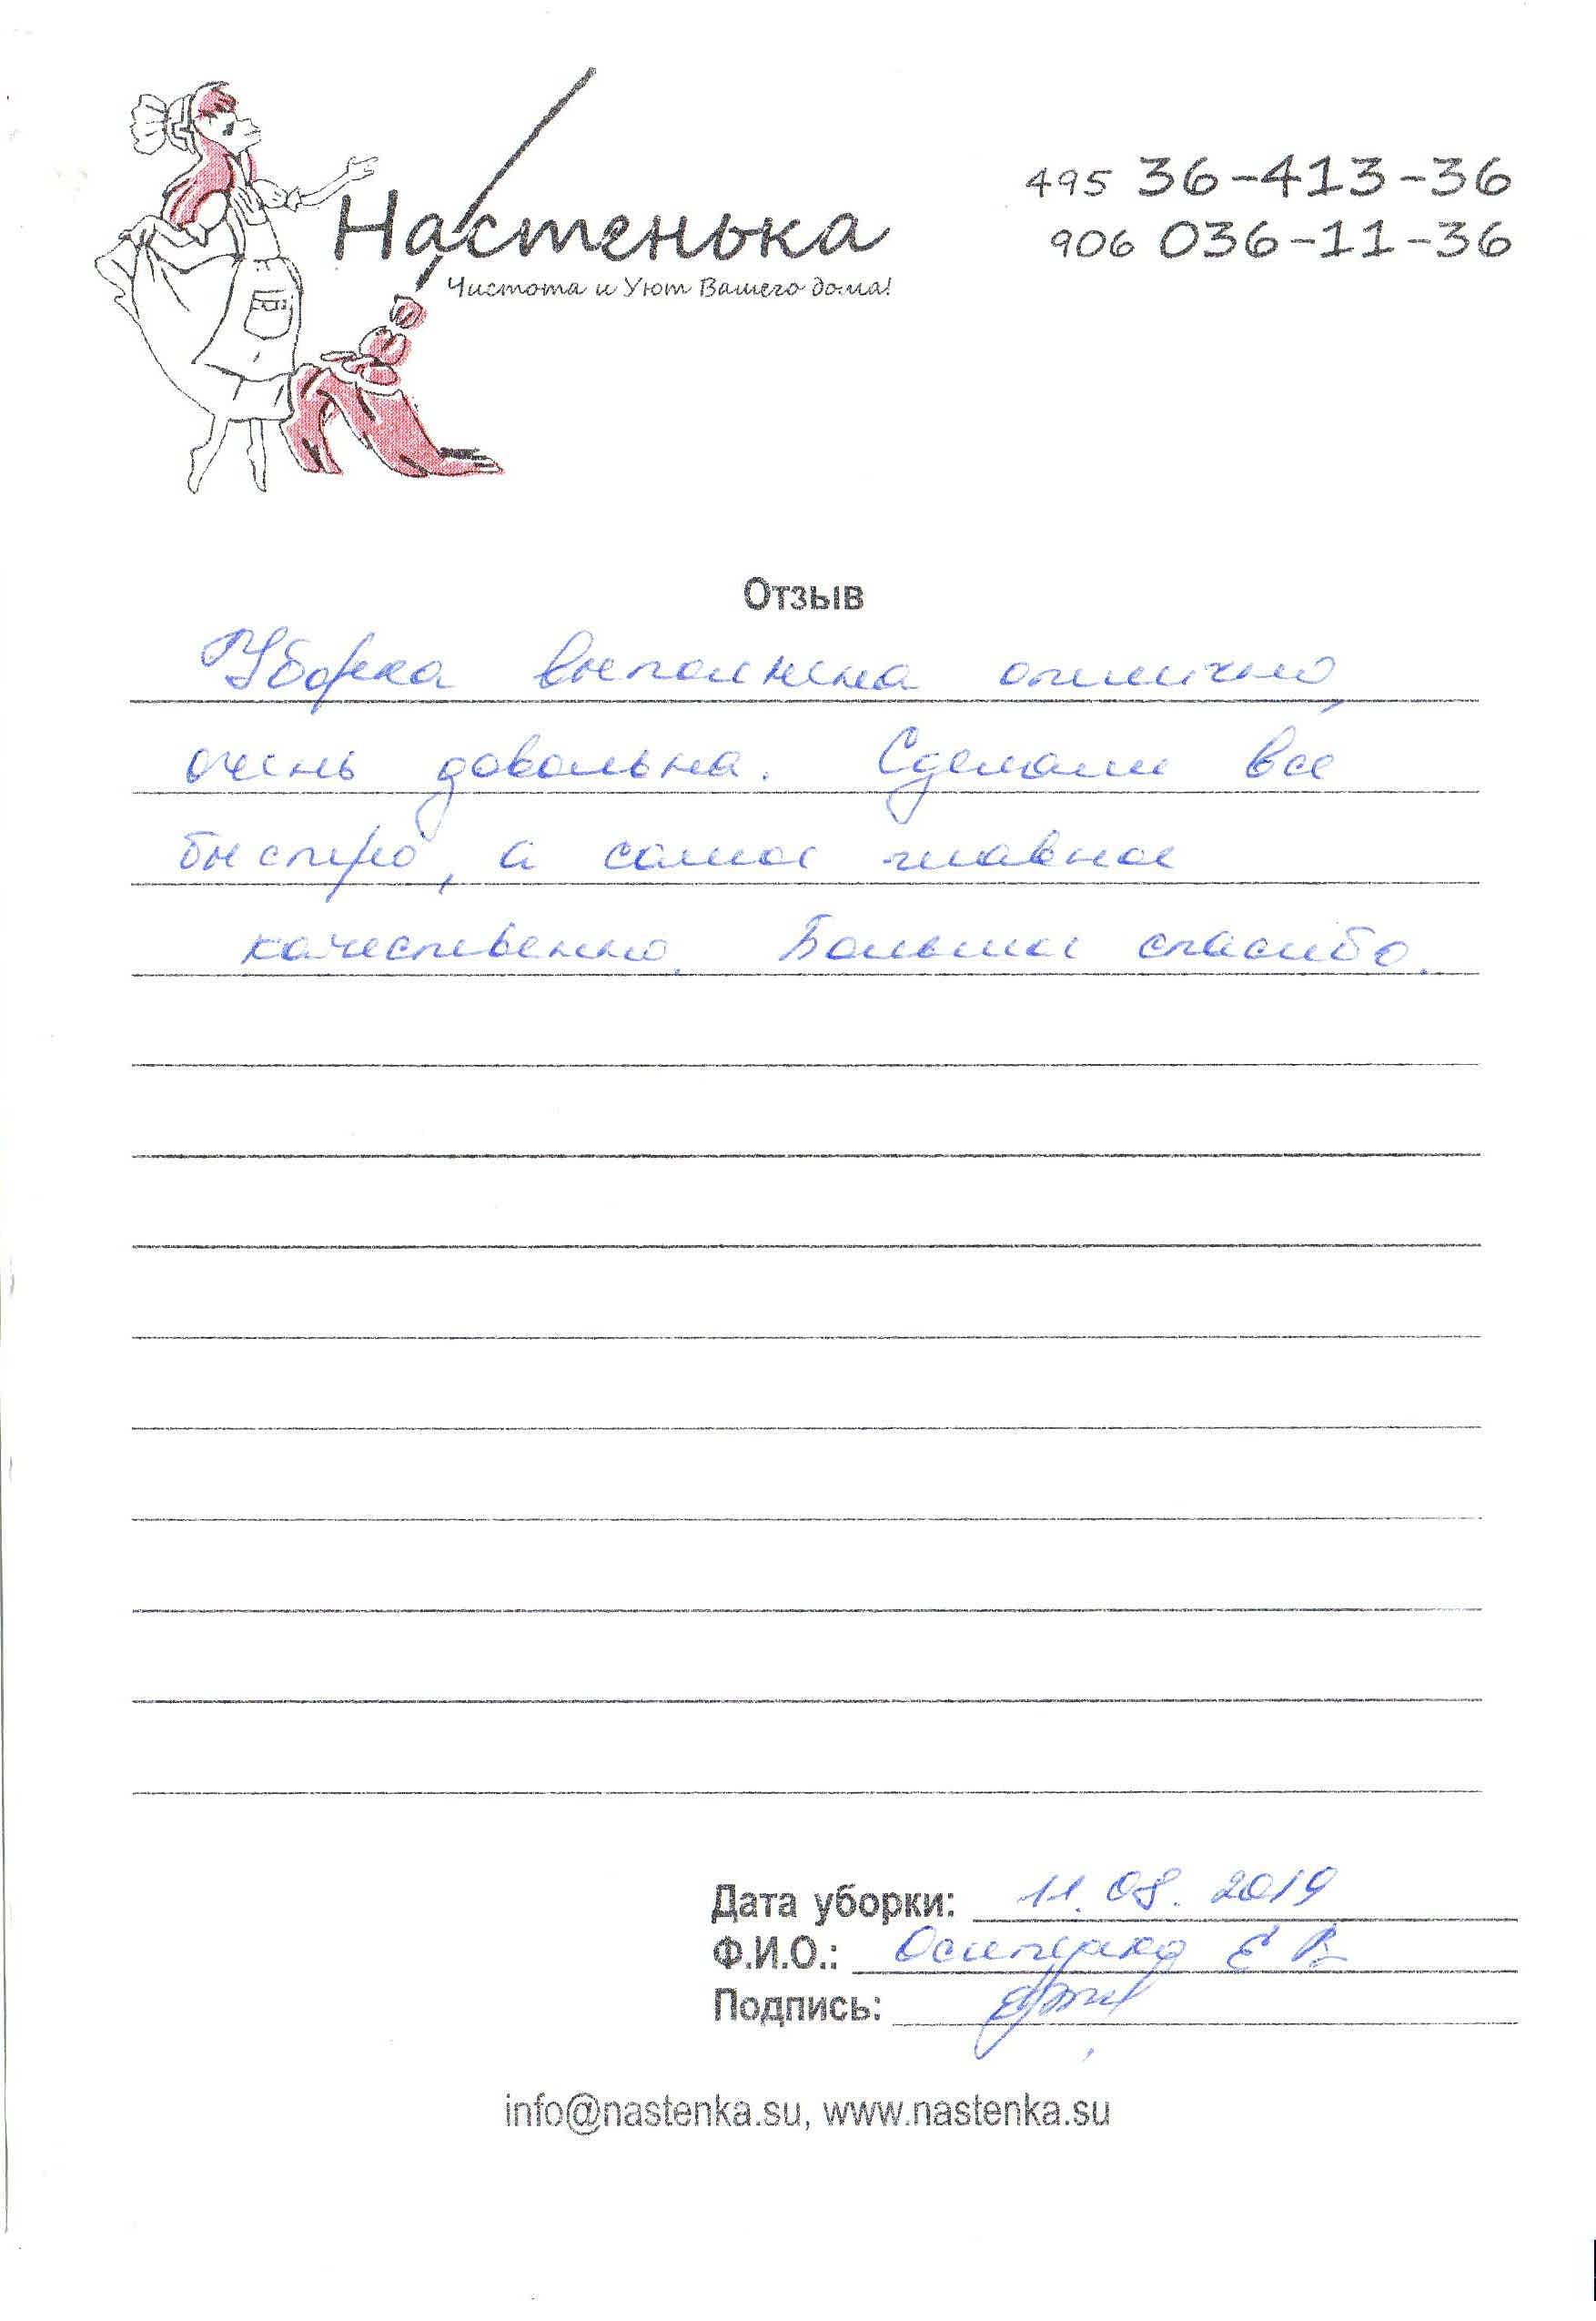 495 36-413-36
Настенька
906 036-11-36
Чистота и Уют Вашего дома!
Отзыв
Уборка выполнена отлично,
очень довольна. Сделали все
быстро, а самое главное
качественно. Большое спасибо.
Дата уборки: 11.08.2019
Ф.И.О.: Е В
Подпись:
info@nastenka.su, www.nastenka.su